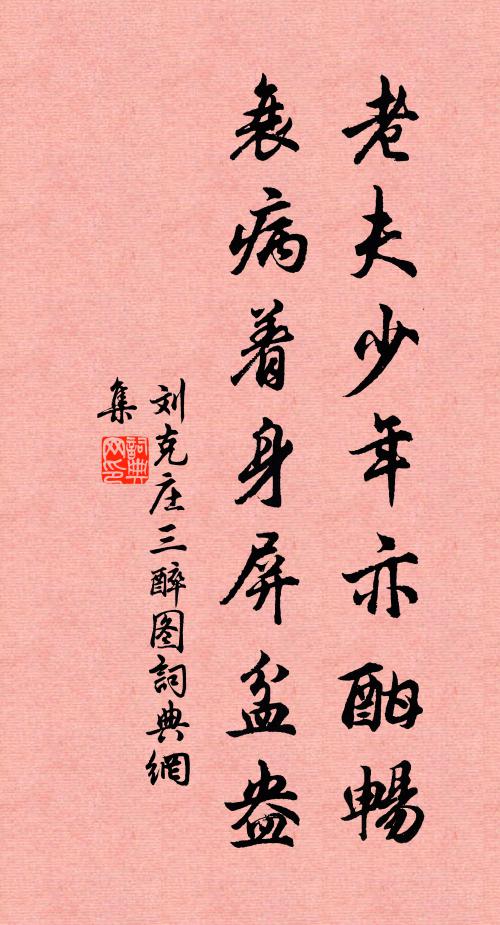 老夫少年亦酣暢
衰病着身屏盆盎
刘克庄三醉图詞典網
集
詞典
网印